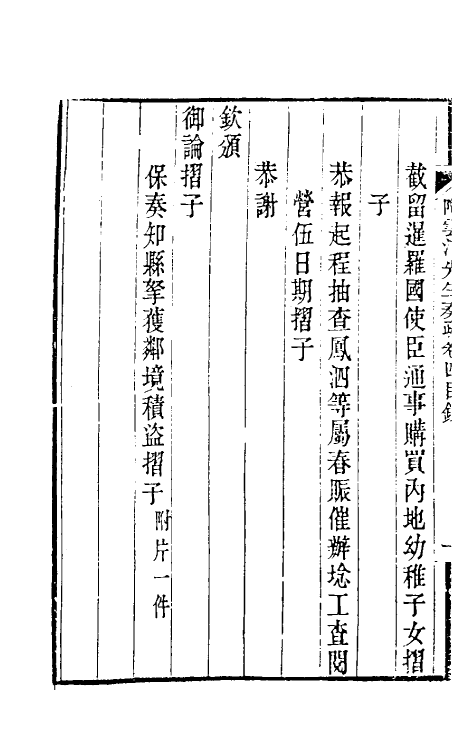 截留暹羅國使臣通事購買內地幼稚子女摺
子
恭報起程抽查鳳泗等屬春賑催辦埝工查閱
營伍日期摺子
恭謝
欽頒
御論摺子
保奏知縣拏獲鄰境積盜摺子附片一件
先生奏疏卷四目錄